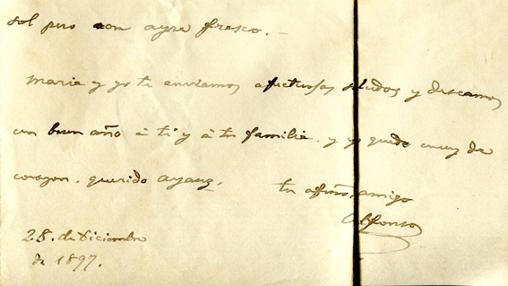 sol pero con ayre fresco. -
Maria y yo te enviamos afectuosos saludos y deseamos
un buen año á ti y á tu familia, y yo quedo muy de
corazon, querido Ayanz,
tu afmo. amigo
Alfonso
28. de Diciembre
de 1897.